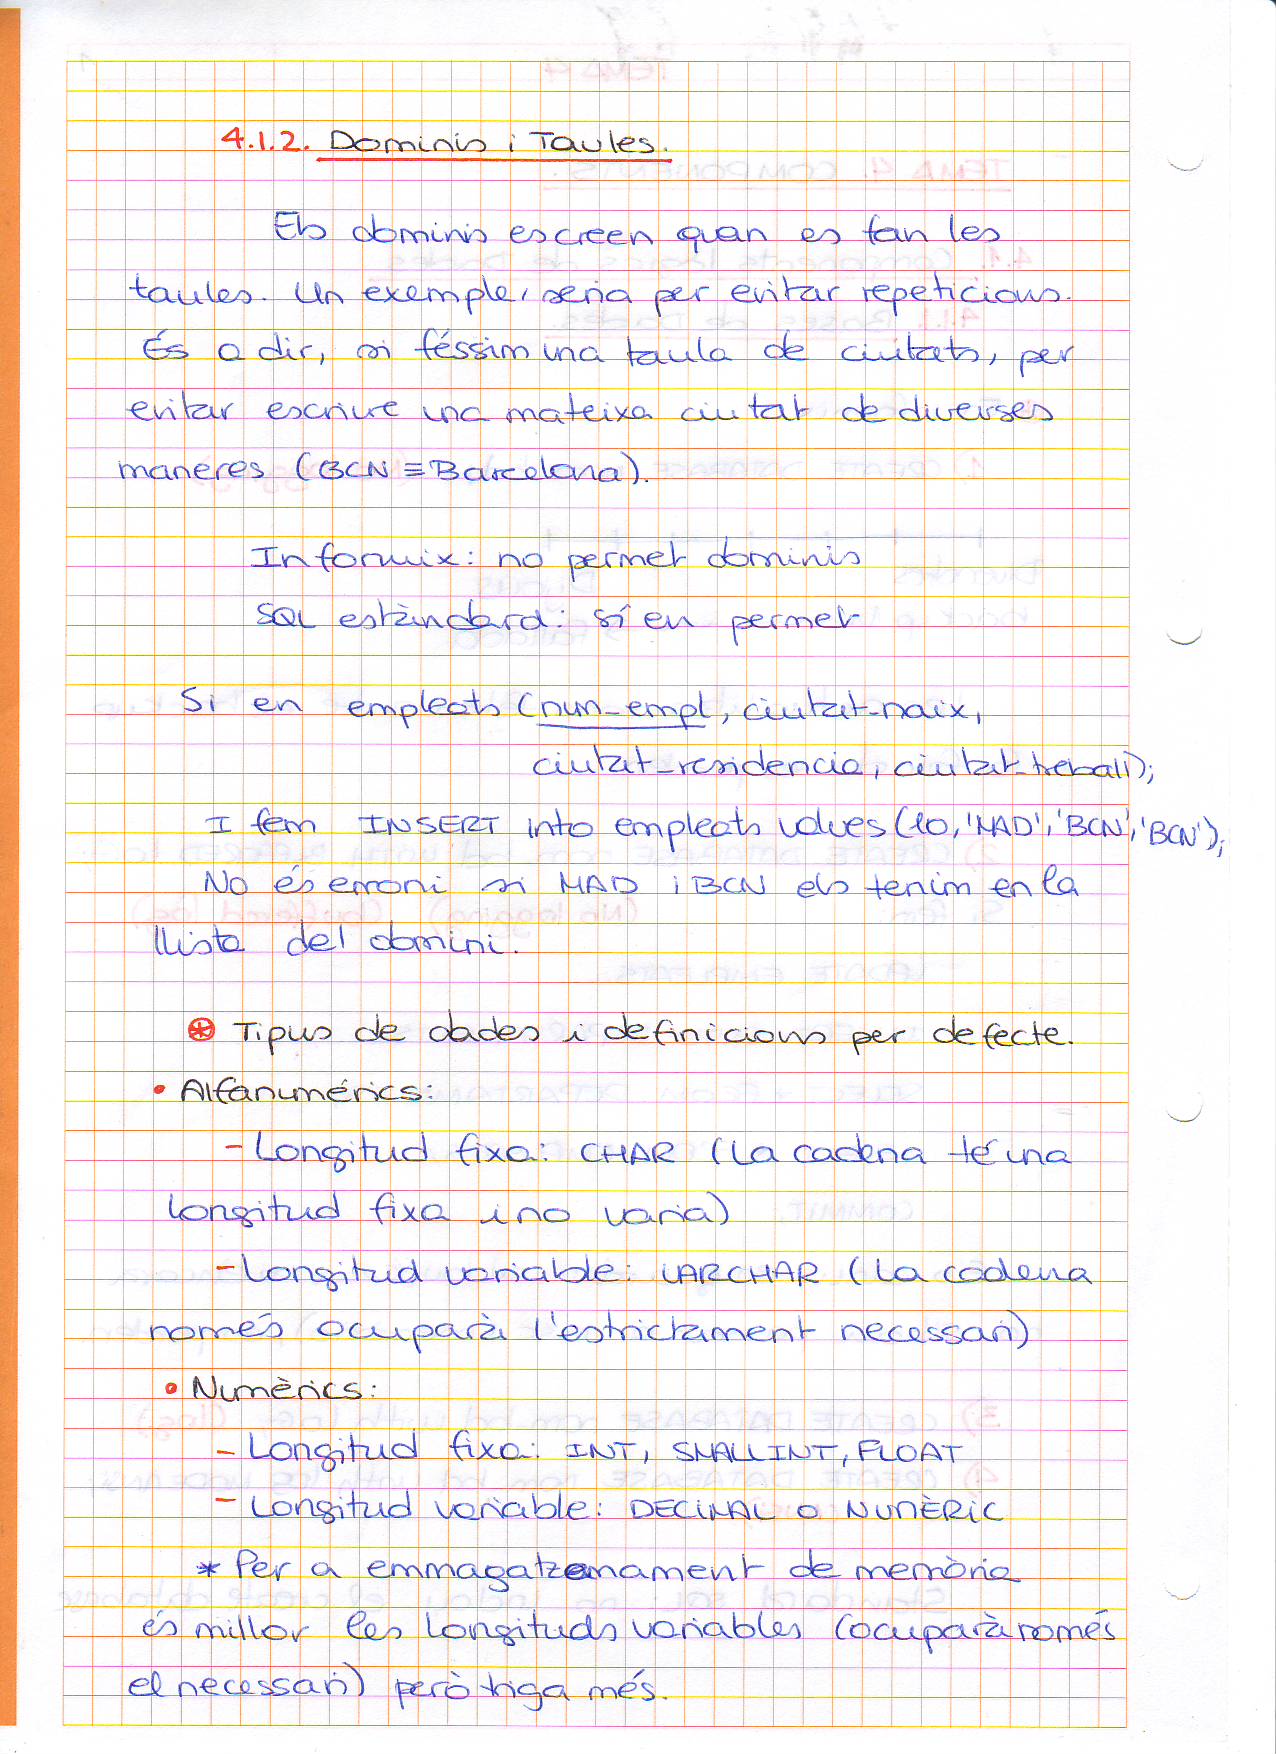 4.1.2. Dominis i Taules.
Els dominis es creen quan es fan les
taules. Un exemple, seria per evitar repeticions.
És a dir, si féssim una taula de ciutats, per
evitar escriure una mateixa ciutat de diverses
maneres (BCN ≡ Barcelona).
Informix: no permet dominis
SQL estàndard: sí en permet
Si en empleats (num_empl, ciutat_naix,
ciutat_residencia, ciutat_treball);
I fem INSERT into empleats values (10, 'MAD', 'BCN', 'BCN');
No és erroni si MAD i BCN els tenim en la
llista del domini.
⊛ Tipus de dades i definicions per defecte.
• Alfanumérics:
- Longitud fixa: CHAR (La cadena té una
longitud fixa i no varia)
- Longitud variable: VARCHAR (La cadena
només ocuparà l'estrictament necessari)
• Numèrics:
- Longitud fixa: INT, SMALLINT, FLOAT
- Longitud variable: DECIMAL o NUMÈRIC
* Per a emmagatzemament de memòria
és millor les longituds variables (ocuparà només
el necessari) però triga més.